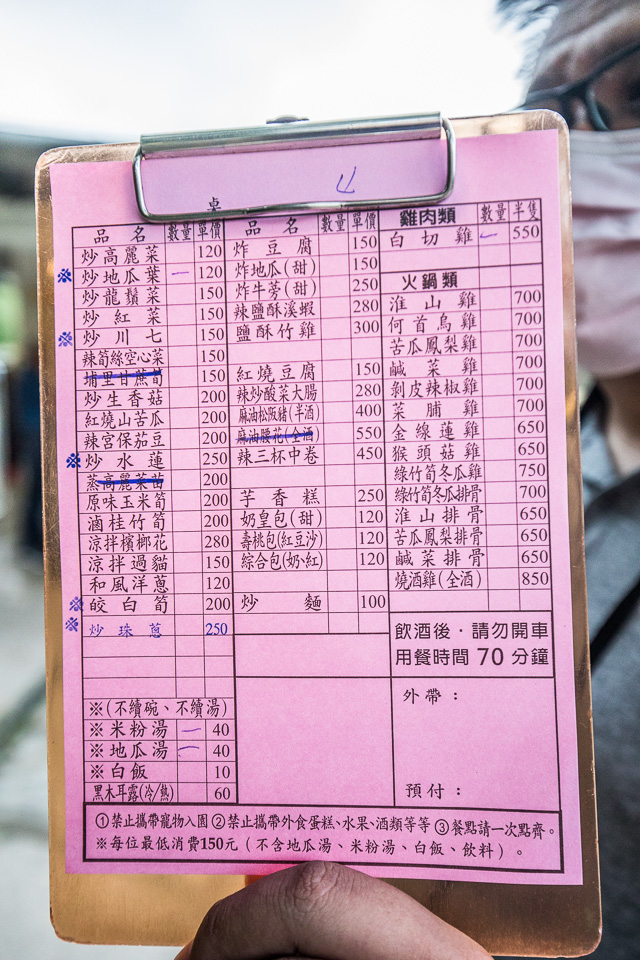 卓
品名 數量 單價
炒高麗菜 120
※ 炒地瓜葉 一 120
炒龍鬚菜 150
炒紅菜 150
※ 炒川七 150
辣筍絲空心菜 150
埔里甘蔗筍 150
炒生香菇 200
紅燒山苦瓜 200
辣宮保茄豆 200
※ 炒水蓮 250
蒸高麗菜苗 200
原味玉米筍 200
滷桂竹筍 200
涼拌檳榔花 280
涼拌過貓 150
和風洋蔥 120
※ 皎白筍 200
※ 炒珠蔥 250
※(不續碗、不續湯)
※米粉湯 一 40
※地瓜湯 一 40
※白飯 10
黑木耳露(冷/熱) 60
品名 數量 單價
炸豆腐 150
炸地瓜(甜) 150
炸牛蒡(甜) 250
辣鹽酥溪蝦 280
鹽酥竹雞 300
紅燒豆腐 150
辣炒酸菜大腸 280
麻油松阪豬(半酒) 400
麻油腰花(全酒) 550
辣三杯中卷 450
芋香糕 250
奶皇包(甜) 120
壽桃包(紅豆沙) 120
綜合包(奶、紅) 120
炒麵 100
雞肉類 數量 半隻
白切雞 一 550
火鍋類
淮山雞 700
何首烏雞 700
苦瓜鳳梨雞 700
鹹菜雞 700
剝皮辣椒雞 700
菜脯雞 700
金線蓮雞 650
猴頭菇雞 650
綠竹筍冬瓜雞 750
綠竹筍冬瓜排骨 700
淮山排骨 650
苦瓜鳳梨排骨 650
鹹菜排骨 650
燒酒雞(全酒) 850
飲酒後．請勿開車
用餐時間 70 分鐘
外帶：
預付：
①禁止攜帶寵物入園②禁止攜帶外食蛋糕、水果、酒類等等③餐點請一次點齊。
※每位最低消費150元（不含地瓜湯、米粉湯、白飯、飲料）。